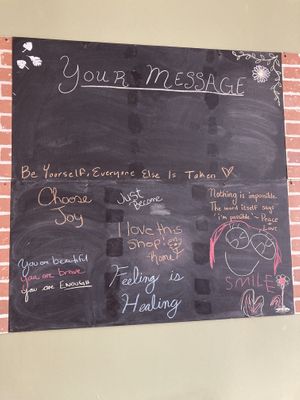 Your Message
Be Yourself, Everyone Else Is Taken
Choose
Joy
Just
Become
I love this
shop!
home
Nothing is impossible.
The word itself says
"i'm possible" ~ Peace
Love
You are beautiful
you are brave
you are ENOUGH
Feeling is
Healing
SMILE